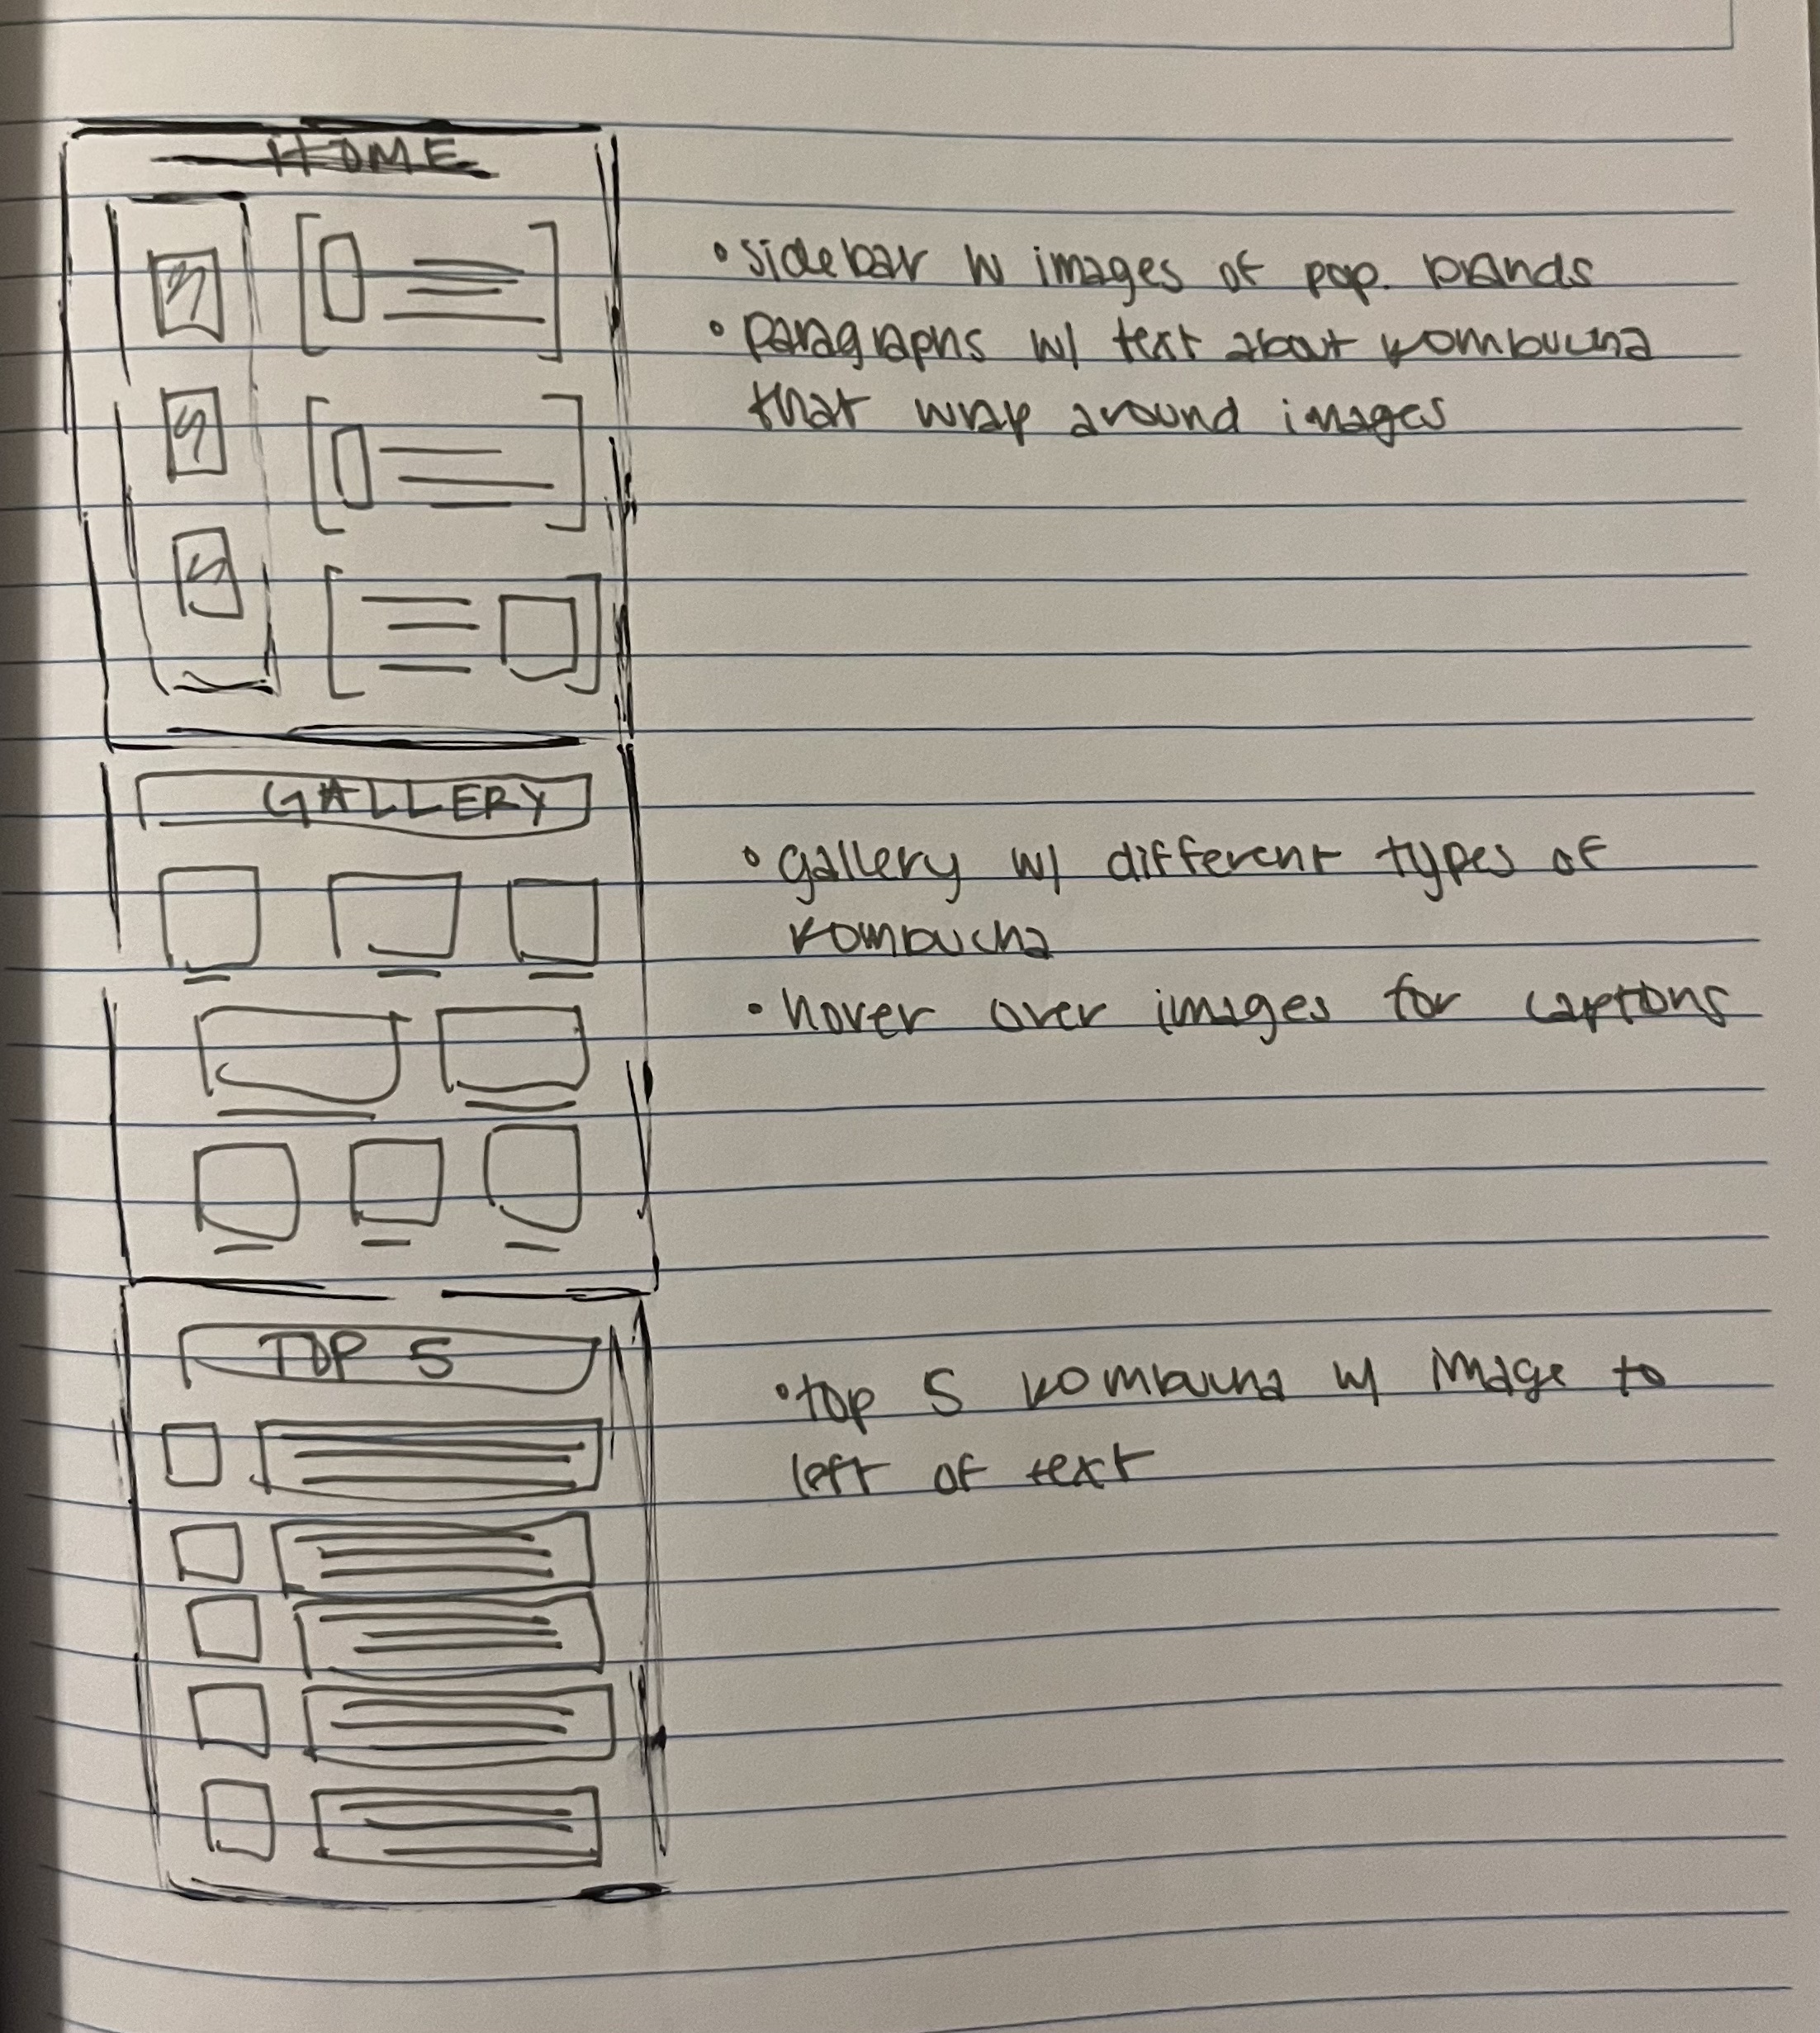 HOME
• sidebar w images of pop. brands
• paragraphs w/ text about kombucha
that wrap around images
GALLERY
• gallery w/ different types of
kombucha
• hover over images for captions
TOP 5
• top 5 kombucha w/ image to
left of text